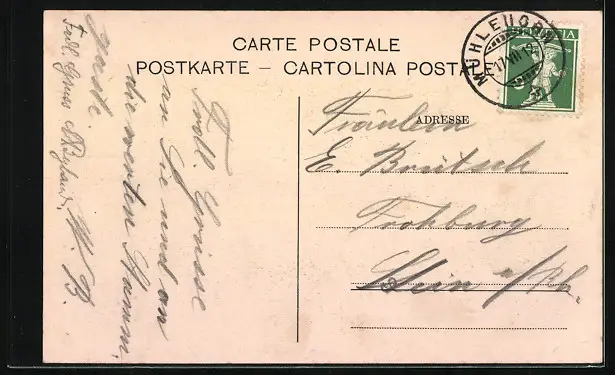 CARTE POSTALE
POSTKARTE – CARTOLINA POSTALE
MÜHLEHORN
17.VII.12
HELVETIA
ADRESSE
Fräulein
E. Brütsch
Frohburg
Stein a/Rh.
Frdl. Grüsse
an Sie und an
die werten Stamm-
gäste.
W. B.
Frdl. Gruss